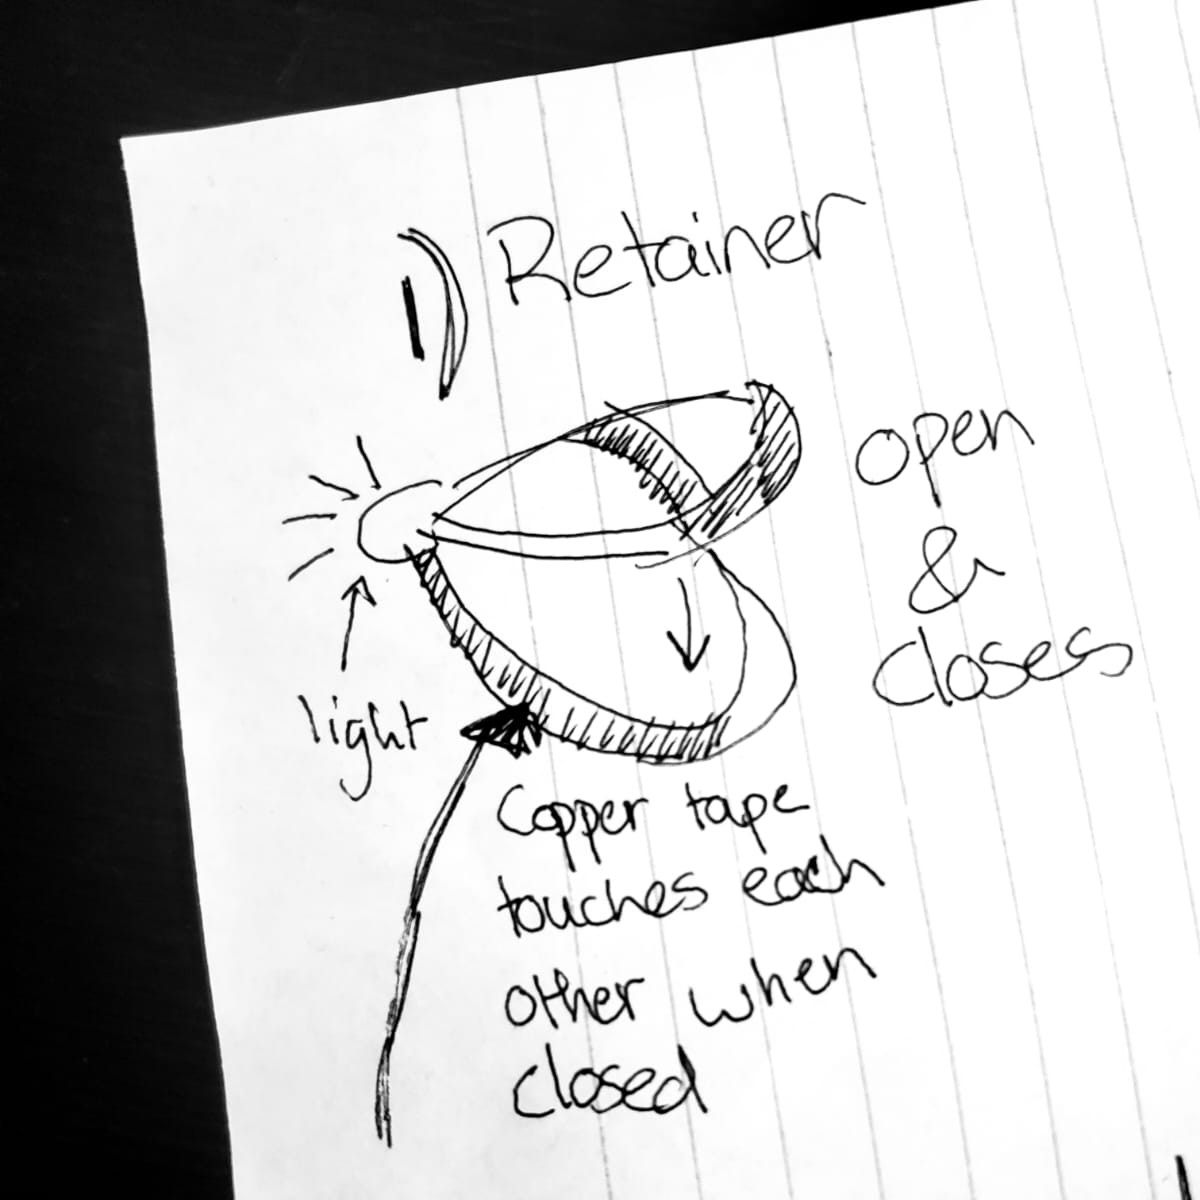 1) Retainer
open
&
closes
light
Copper tape
touches each
other when
closed